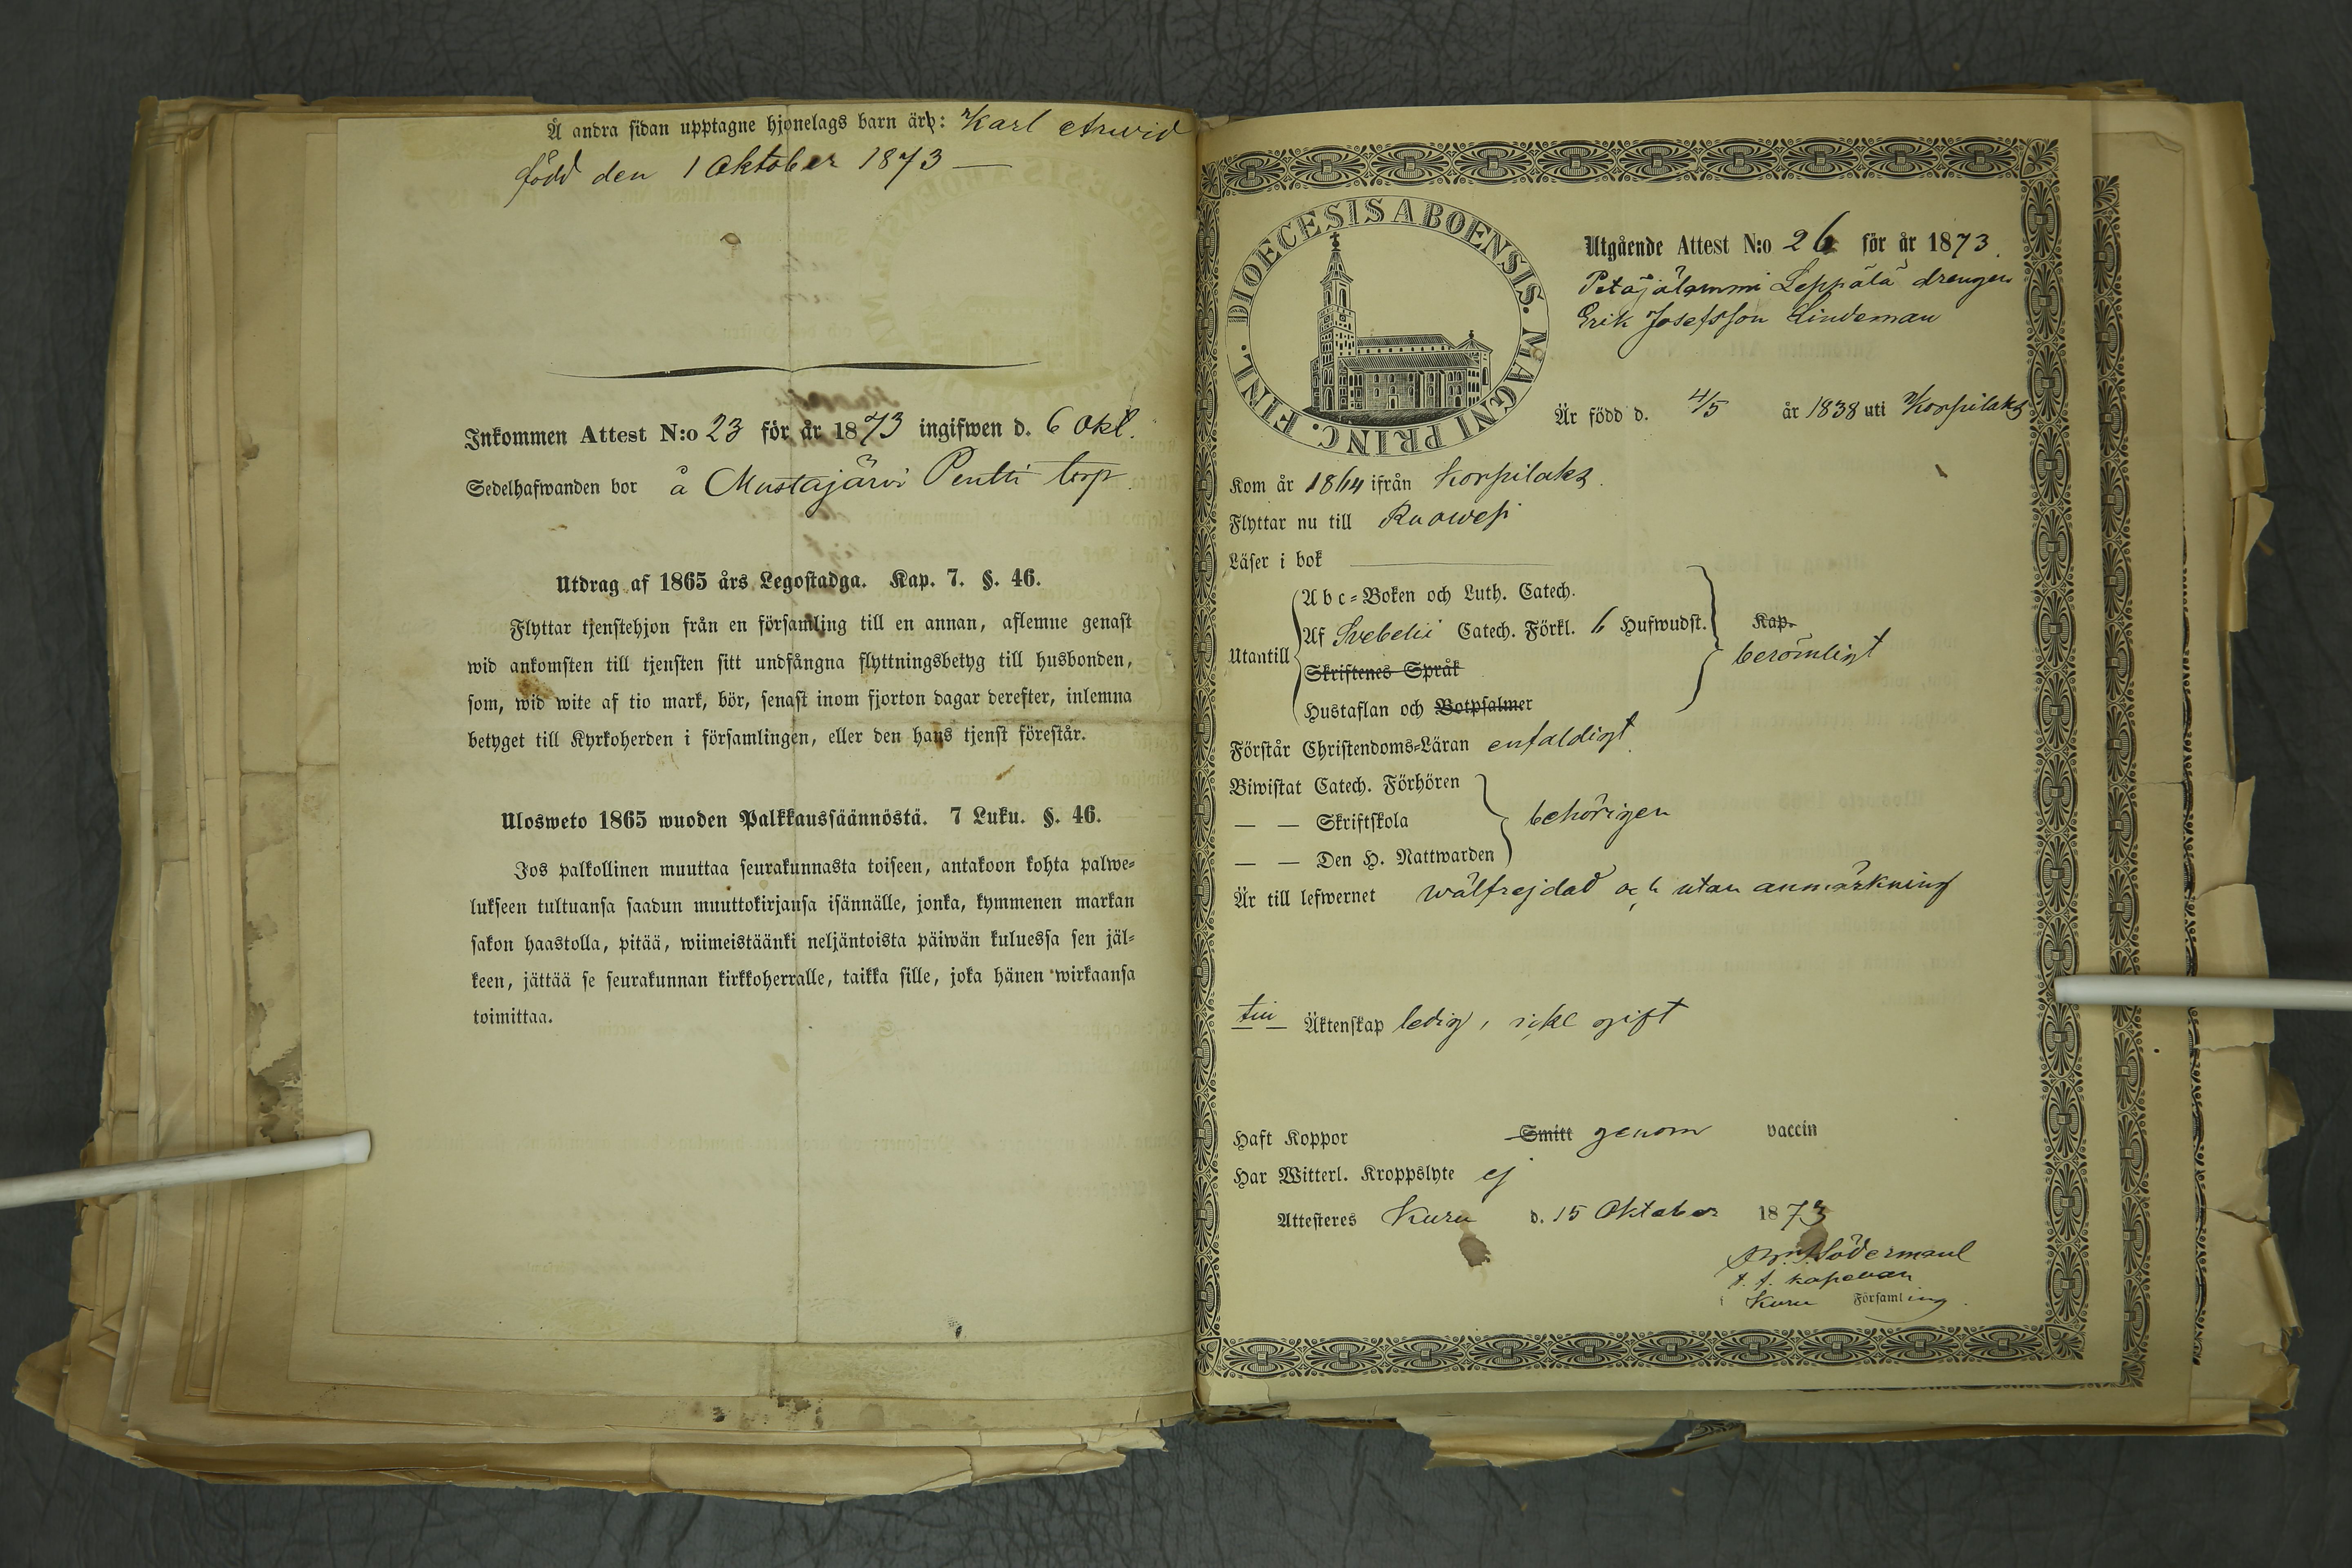 Å andra sidan upptagne hjonelags barn är: Karl Arwid
född den 1 Oktober 1873 —
Inkommen Attest N:o 23 för år 1873 ingifwen d. 6 Okt.
Sedelhafwanden bor å Mustajärvi Pentti torp.
Utdrag af 1865 års Legostadga. Kap. 7. §. 46.
Flyttar tjenstehjon från en församling till en annan, aflemne genast
wid ankomsten till tjensten sitt undfångna flyttningsbetyg till husbonden,
som, wid wite af tio mark, bör, senast inom fjorton dagar derefter, inlemna
betyget till Kyrkoherden i församlingen, eller den hans tjenst förestår.
Ulosweto 1865 wuoden Palkkaussäännöstä. 7 Luku. §. 46.
Jos palkollinen muuttaa seurakunnasta toiseen, antakoon kohta palwe-
lukseen tultuansa saadun muuttokirjansa isännälle, jonka, kymmenen markan
sakon haastolla, pitää, wiimeistäänki neljäntoista päiwän kuluessa sen jäl-
keen, jättää se seurakunnan kirkkoherralle, taikka sille, joka hänen wirkaansa
toimittaa.
DIOECESIS ABOENSIS. MAGNI PRINC. FINL.
Utgående Attest N:o 26 för år 1873.
Petäjälammi Leppälä drengen
Erik Josefsson Lindeman
Är född d. 4/5 år 1838 uti Korpilaks
Kom år 1864 ifrån Korpilaks.
Flyttar nu till Ruowesi
Läser i bok
Utantill
Abc-Boken och Luth. Catech.
Af Svebelii Catech. Förkl. 6 Hufwudst.
Skriftenes Språk
Hustaflan och Botpsalmer
Kap.
berömligt
Förstår Christendoms-Läran enfaldigt.
Biwistat Catech. Förhören
— — Skriftskola
— — Den H. Nattwarden
behörigen
Är till lefwernet wälfrejdad och utan anmärkning
till Äktenskap ledig, icke gift
Haft Koppor Smitt genom vaccin
Har Witterl. Kroppslyte ej
Attesteras Kuru d. 15 Oktober 1873
Södermanl
t. f. kapellan
i Kuru Församling.